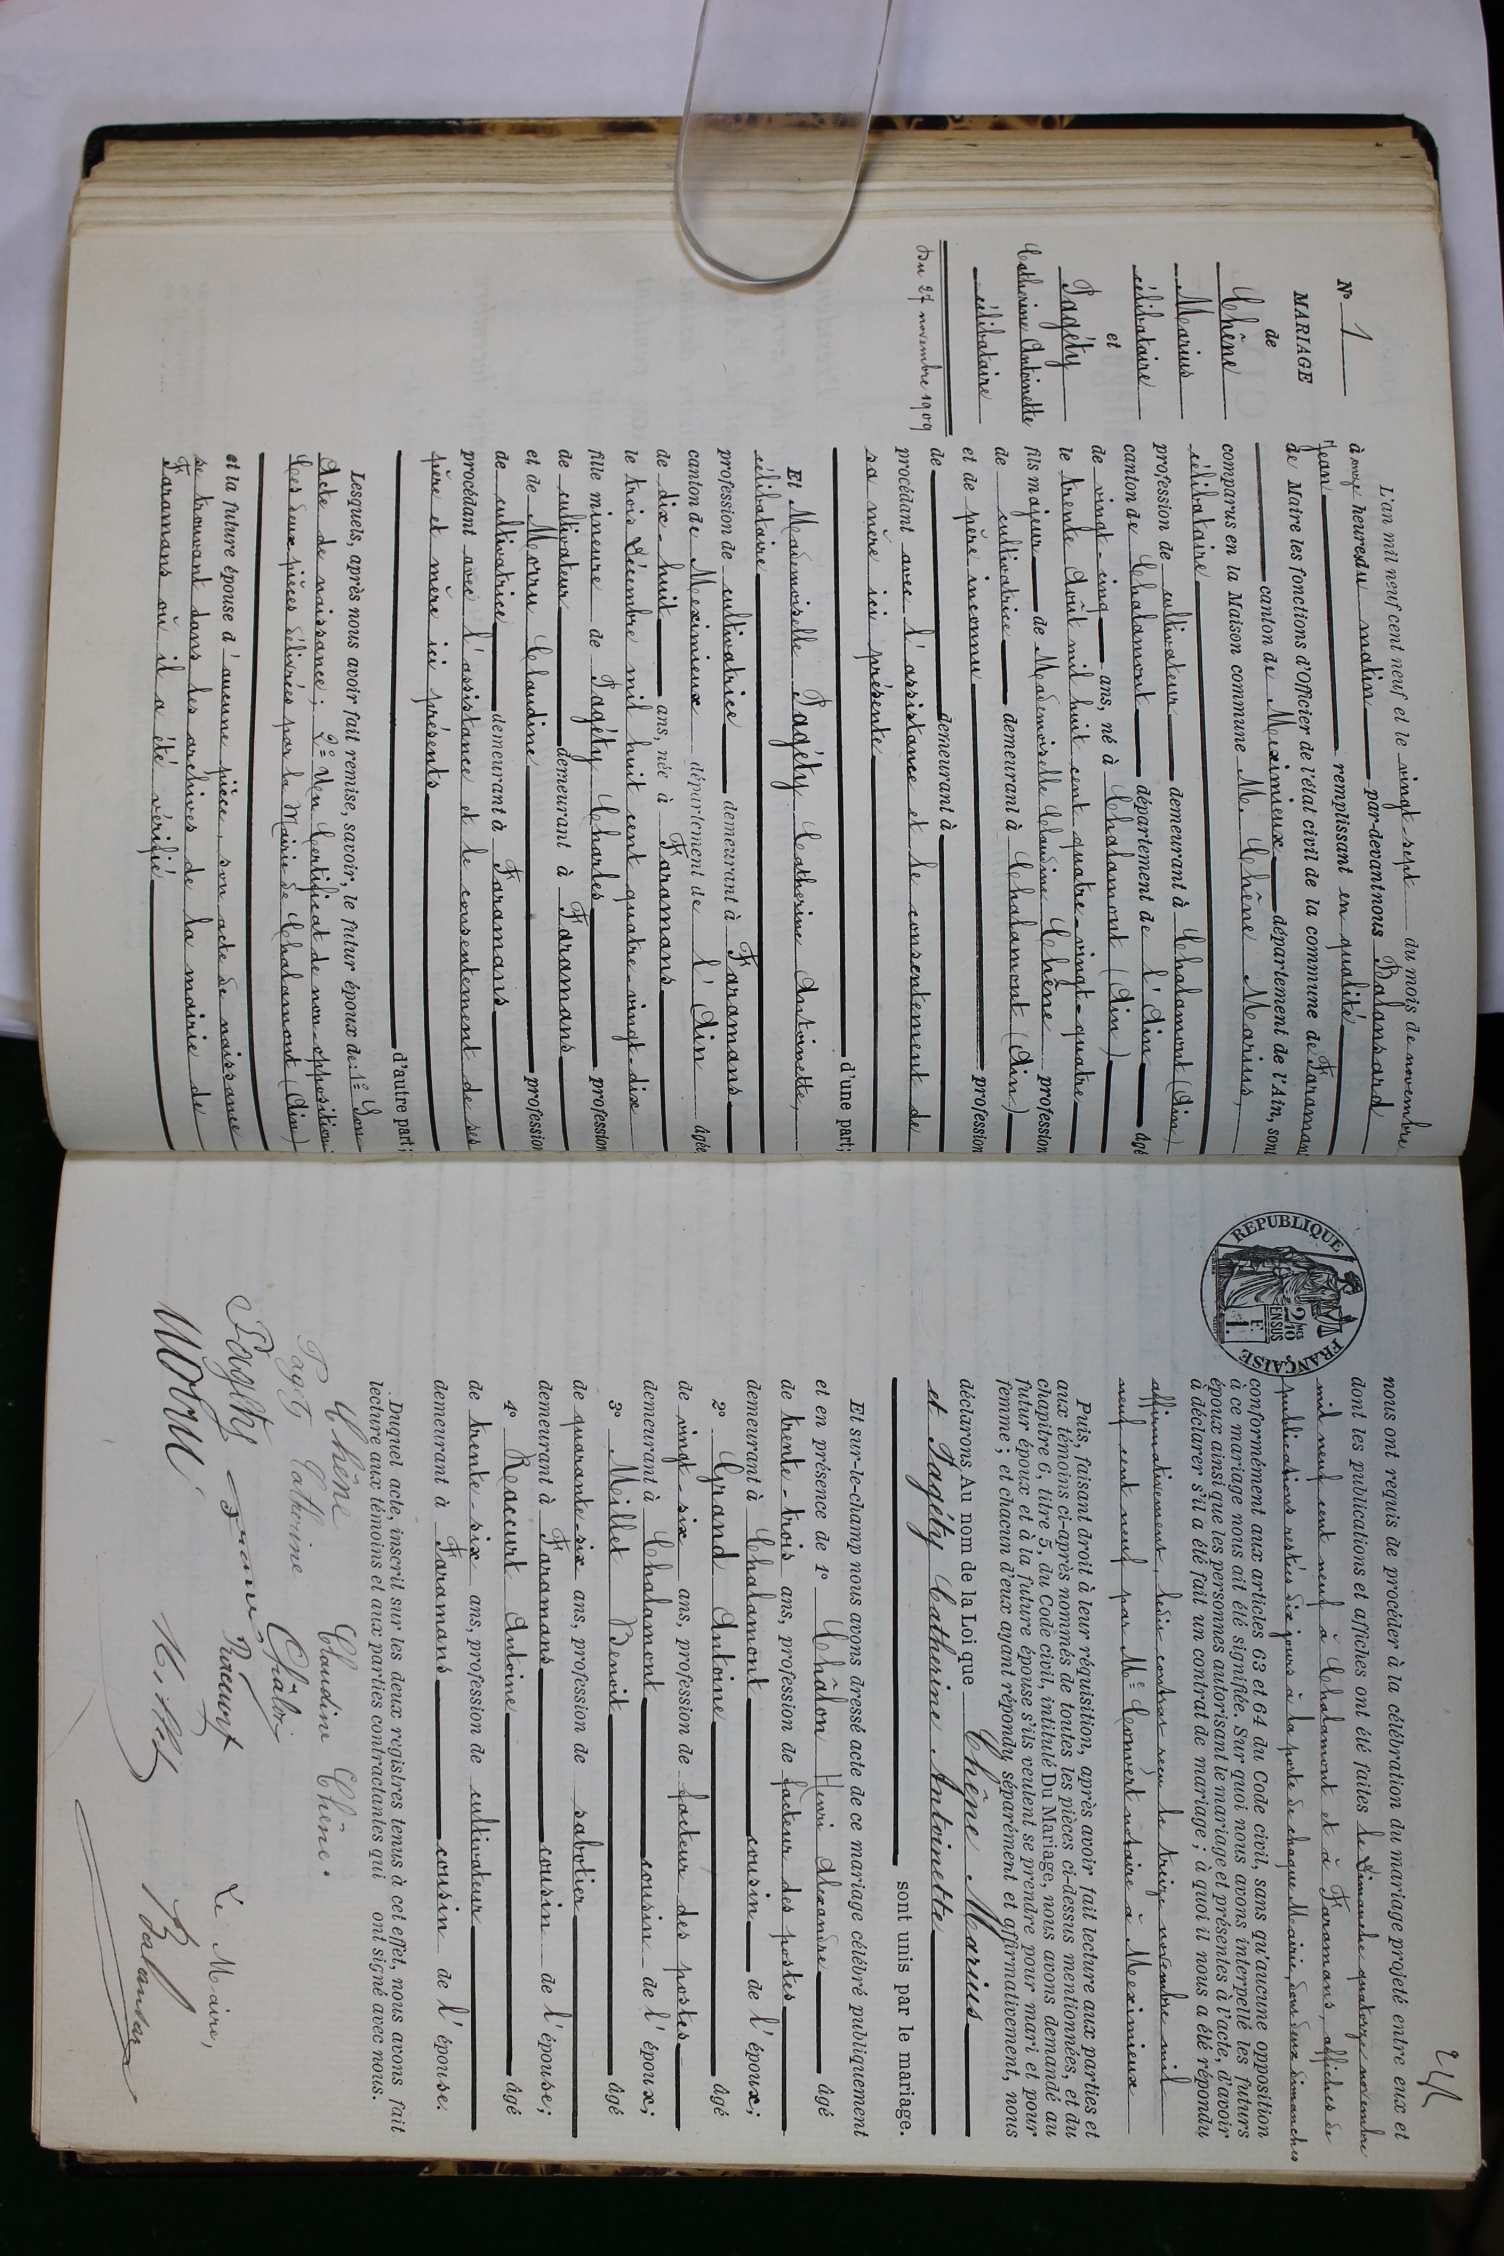 N° 1
MARIAGE
de
Chêne
Marius
célibataire
et
Pagéty
Catherine Antoinette
célibataire
Du 27 novembre 1909
L'an mil neuf cent neuf et le vingt-sept du mois de novembre
à onze heures du matin par-devant nous Balansard
Jean remplissant en qualité
de Maire les fonctions d'Officier de l'état civil de la commune de Faramans
canton de Meximieux département de l'Ain, sont
comparus en la Maison commune M. Chêne Marius,
célibataire
profession de cultivateur demeurant à Chalamont (Ain)
canton de Chalamont département de l'Ain âgé
de vingt-cinq ans, né à Chalamont (Ain)
le trente Août mil huit cent quatre-vingt-quatre
fils majeur de Mademoiselle Claudine Chêne profession
de cultivatrice demeurant à Chalamont (Ain)
et de père inconnu profession
de demeurant à
procédant avec l'assistance et le consentement de
sa mère ici présente
d'une part;
Et Mademoiselle Pagéty Catherine Antoinette,
célibataire
profession de cultivatrice demeurant à Faramans
canton de Meximieux département de l'Ain âgée
de dix-huit ans, née à Faramans
le trois Décembre mil huit cent quatre-vingt-dix
fille mineure de Pagéty Charles profession
de cultivateur demeurant à Faramans
et de Morru Claudine profession
de cultivatrice demeurant à Faramans
procédant avec l'assistance et le consentement de ses
père et mère ici présents
d'autre part;
Lesquels, après nous avoir fait remise, savoir, le futur époux de: 1° Son
Acte de naissance; 2° Un Certificat de non-opposition
Ces deux pièces délivrées par la Mairie de Chalamont (Ain)
et la future épouse d'aucune pièce, son acte de naissance
se trouvant dans les archives de la mairie de
Faramans où il a été vérifié
REPUBLIQUE FRANÇAISE
2/10 MES
EN SUS
1 F.
nous ont requis de procéder à la célébration du mariage projeté entre eux et
dont les publications et affiches ont été faites le Dimanche quatorze novembre
mil neuf cent neuf à Chalamont et à Faramans, affiches de
publications restées dix jours à la porte de chaque Mairie, dont deux dimanches
conformément aux articles 63 et 64 du Code civil, sans qu'aucune opposition
à ce mariage nous ait été signifiée. Sur quoi nous avons interpellé les futurs
époux ainsi que les personnes autorisant le mariage et présentes à l'acte, d'avoir
à déclarer s'il a été fait un contrat de mariage; à quoi il nous a été répondu
affirmativement, ledit contrat reçu le treize novembre mil
neuf cent neuf par Me Convert notaire à Meximieux
Puis, faisant droit à leur réquisition, après avoir fait lecture aux parties et
aux témoins ci-après nommés de toutes les pièces ci-dessus mentionnées, et du
chapitre 6, titre 5, du Code civil, intitulé Du Mariage, nous avons demandé au
futur époux et à la future épouse s'ils veulent se prendre pour mari et pour
femme; et chacun d'eux ayant répondu séparément et affirmativement, nous
déclarons Au nom de la Loi que Chêne Marius
et Pagéty Catherine Antoinette
sont unis par le mariage.
Et sur-le-champ nous avons dressé acte de ce mariage célébré publiquement
et en présence de 1° Châlon Henri Alexandre âgé
de trente-trois ans, profession de facteur des postes
demeurant à Chalamont cousin de l'époux;
2° Grand Antoine âgé
de vingt-six ans, profession de facteur des postes
demeurant à Chalamont cousin de l'époux;
3° Millet Benoit âgé
de quarante-six ans, profession de sabotier
demeurant à Faramans cousin de l'épouse;
4° Reaccurt Antoine âgé
de trente-six ans, profession de cultivateur
demeurant à Faramans cousin de l'épouse.
Duquel acte, inscrit sur les deux registres tenus à cet effet, nous avons fait
lecture aux témoins et aux parties contractantes qui ont signé avec nous.
Chêne Claudine Chêne.
Pagéty Catherine
Pagéty
Le Maire,
Morru Millet Balansard